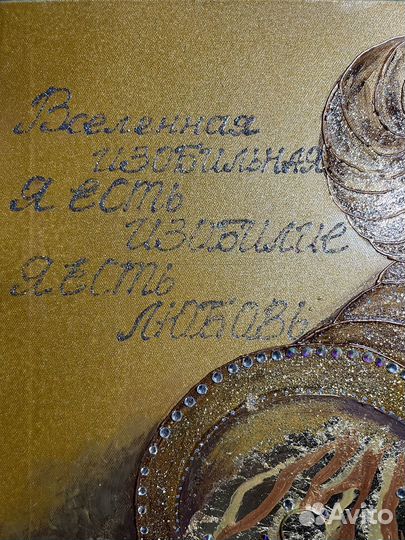 Вселенная
изобильная
Я есть
изобилие
Я есть
любовь
Avito